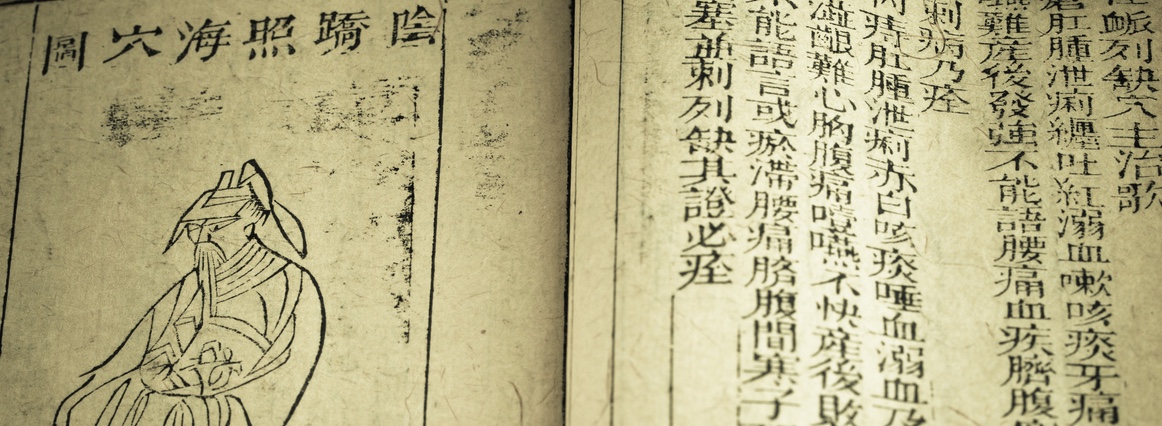 脈列缺穴主治歌
瘡肛腫泄痢纏吐紅溺血嗽咳痰牙痛
難產後發強不能語腰痛血疾臍腹
刺病乃痊
痔肛腫泄痢赤白咳痰唾血溺血乃
難心胸腹痛噎嚥不快產後敗
不能語言或瘀滯腰痛胳腹間寒子
塞並刺列缺其證必痊
陰蹻照海穴圖